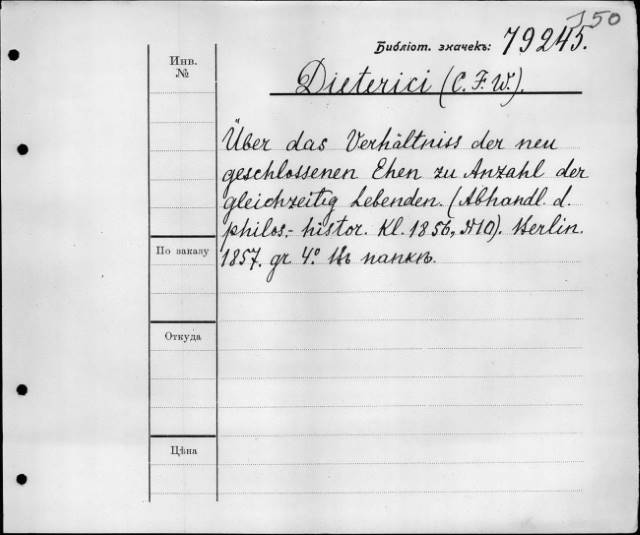 150
Библіот. значекъ: 79245.
Инв.
№
Dieterici (C. F. W.).
Über das Verhältniss der neu
geschlossenen Ehen zu Anzahl der
gleichzeitig Lebenden. (Abhandl. d.
philos.- histor. Kl. 1856, №10). Berlin.
По заказу
1857. gr 4.° Въ папкѣ.
Откуда
Цѣна